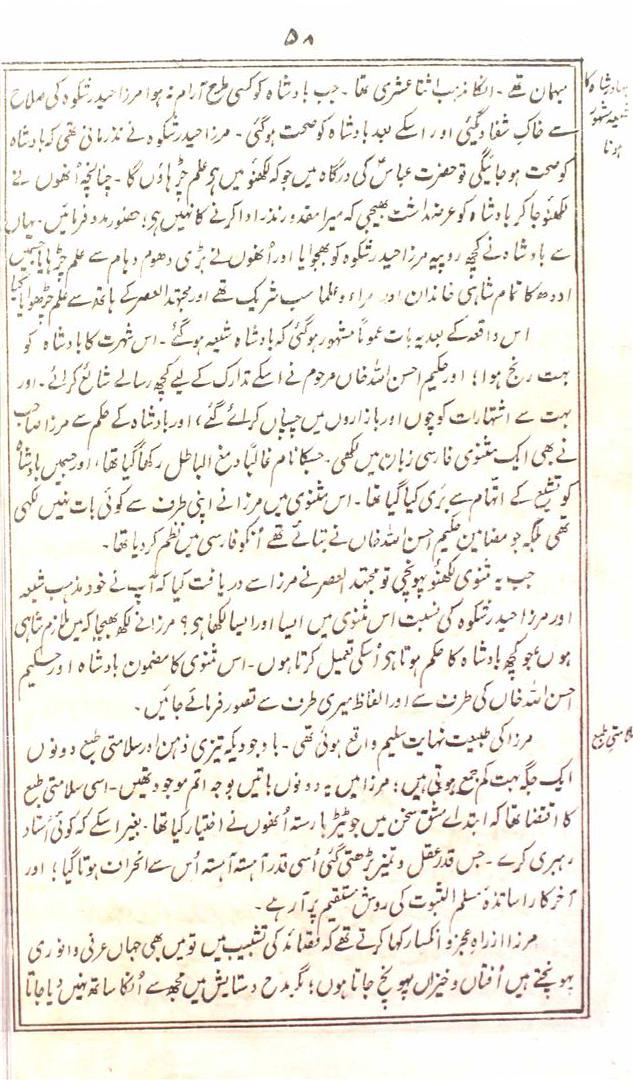 ۵۸
مہمان تھے۔ انکا مذہب اثنا عشری تھا۔ جب بادشاہ کو کسی طرح آرام نہ ہوا مرزا حیدر شکوہ کی صلاح
سے خاکِ شفا دیگئی اور اسکے بعد بادشاہ کو صحت ہوگئی۔ مرزا حیدر شکوہ نے نذر مانی تھی کہ بادشاہ
کو صحت ہو جائیگی تو حضرت عباسؑ کی درگاہ میں جو کہ لکھنؤ میں ہو علم چڑہاؤں گا۔ چنانچہ اُنھوں نے
لکھنؤ جا کر بادشاہ کو عرضداشت بھیجی کہ میرا مقدور نذر ادا کرنے کا نہیں ہی؛ حضور مدد فرمائیں۔ یہاں
سے بادشاہ نے کچھ روپیہ مرزا حیدر شکوہ کو بھجوایا اور اُنھوں نے بڑی دھوم دہام سے علم چڑہایا جسمیں
اودھ کا تمام شاہی خاندان اور امراء و علما سب شریک تھے اور مجتہد العصر کے ہاتھ سے علم چڑھوایا گیا
اس واقعہ کے بعد یہ بات عموماً مشہور ہوگئی کہ بادشاہ شیعہ ہوگئے۔ اس شہرت کا بادشاہ کو
بہت رنج ہوا؛ اور حکیم احسن اللہ خاں مرحوم نے اسکے تدارک کے لیے کچھ رسالے شائع کرائے۔ اور
بہت سے اشتہارات کوچوں اور بازاروں میں چسپاں کرائے گئے، اور بادشاہ کے حکم سے مرزا صاحب
نے بھی ایک مثنوی فارسی زبان میں لکھی۔ جسکا نام غالباً دمغ الباطل رکھا گیا تھا، اور جسمیں بادشاہ
کو تشیع کے اتہام سے بری کیا گیا تھا۔ اس مثنوی میں مرزا نے اپنی طرف سے کوئی بات نہیں لکھی
تھی بلکہ جو مضامین حکیم احسن اللہ خاں نے بتائے تھے اُنکو فارسی میں نظم کر دیا تھا۔
جب یہ مثنوی لکھنؤ پہونچی تو مجتہد العصر نے مرزا سے دریافت کیا کہ آپ نے خود مذہب شیعہ
اور مرزا حیدر شکوہ کی نسبت اس مثنوی میں ایسا اور ایسا لکھا ہی؟ مرزا نے لکھ بھیجا کہ میں ملازم شاہی
ہوں جو کچھ بادشاہ کا حکم ہوتا ہو اُسکی تعمیل کرتا ہوں۔ اس مثنوی کا مضمون بادشاہ اور حکیم
احسن اللہ خاں کی طرف سے اور الفاظ میری طرف سے تصور فرمائے جائیں۔
مرزا کی طبیعت نہایت سلیم واقع ہوئی تھی۔ با وجودیکہ تیزی ذہن اور سلامتی طبع دونوں
ایک جگہ بہت کم جمع ہوتی ہیں؛ مرزا میں یہ دونوں باتیں بوجہ اتم موجود تھیں۔ اسی سلامتی طبع
کا اقتضا تھا کہ ابتدائے مشق سخن میں جو ٹیڑہا رستہ اُنھوں نے اختیار کیا تھا۔ بغیر اسکے کہ کوئی اُستاد
رہبری کرے۔ جس قدر عقل و تمیز بڑھتی گئی اُسی قدر آہستہ آہستہ اُس سے انحراف ہوتا گیا؛ اور
آخر کار اساتذہ مسلم الثبوت کی روش مستقیم پر آ رہے۔
مرزا از راہِ عجز و انکسار کہا کرتے تھے کہ قصائد کی تشبیب میں تو میں بھی جہاں عرفی و انوری
پہونچتے ہیں اُفتاں و خیزاں پہونچ جاتا ہوں؛ مگر مدح و ستایش میں مجھسے اُنکا ساتھ نہیں دیا جاتا
بہادر شاہ کا
شیعہ مشہور
ہونا
سلامتی طبع